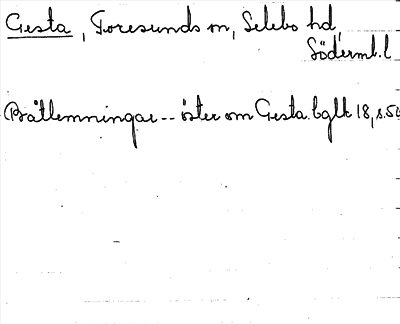 Gesta, Toresunds sn, Selebo hd,
Söderml. l
Båtlämningar -- öster om Gesta. bglk 18, s. 50